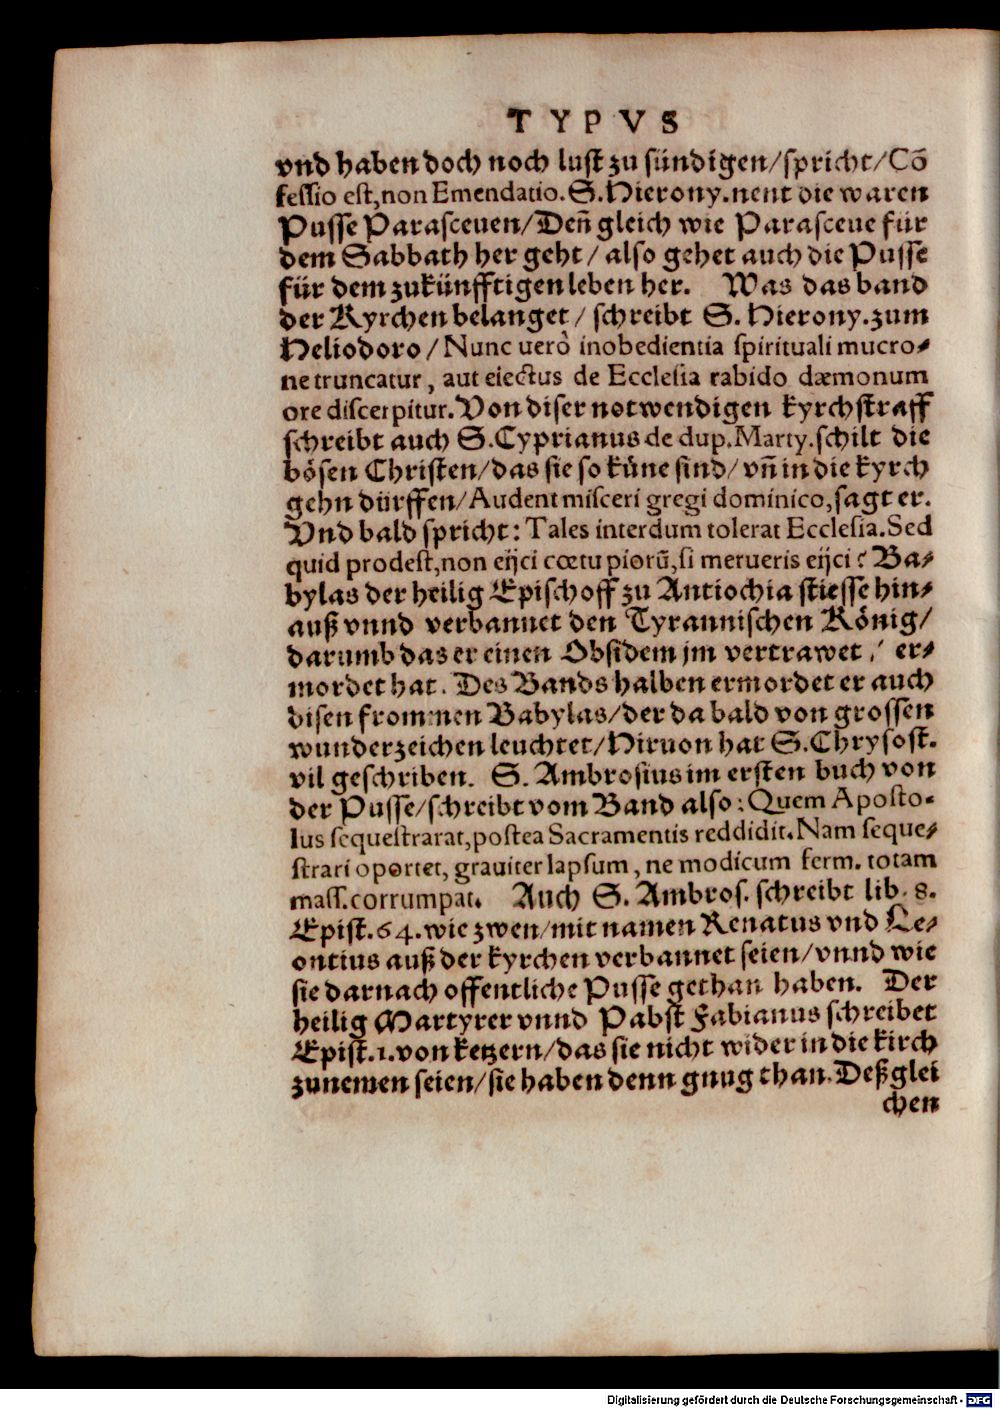 TYPVS
vnd haben doch noch lust zu sündigen/spricht/Cō
fessio est,non Emendatio.S.Hierony.nent die waren
Pusse Parasceuen/Deñ gleich wie Parasceue für
dem Sabbath her geht/also gehet auch die Pusse
für dem zukünfftigen leben her. Was das band
der Kyrchen belanget/ schreibt S. Hierony.zum
Heliodoro/Nunc uerò inobedientia spirituali mucro-
ne truncatur, aut eiectus de Ecclesia rabido dæmonum
ore discerpitur.Von diser notwendigen kyrchstraff
schreibt auch S.Cyprianus de dup.Marty.schilt die
bösen Christen/das sie so küne sind/vñ in die kyrch
gehn dürffen/Audent misceri gregi dominico,sagt er.
Vnd bald spricht: Tales interdum tolerat Ecclesia.Sed
quid prodest,non eijci cœtu piorũ,si merueris eijci? Ba-
bylas der heilig Epischoff zu Antiochia stiesse hin-
auß vnnd verbannet den Tyrannischen König/
darumb das er einen Obsidem jm vertrawet / er-
mordet hat. Des Bands halben ermordet er auch
disen frommen Babylas/der da bald von grossen
wunderzeichen leuchtet/Hiruon hat S.Chrysost.
vil geschriben. S. Ambrosius im ersten buch von
der Pusse/schreibt vom Band also: Quem Aposto-
lus sequestrarat,postea Sacramentis reddidit.Nam seque-
strari oportet, grauiter lapsum, ne modicum ferm. totam
mass.corrumpat. Auch S. Ambros. schreibt lib. 8.
Epist.64.wie zwen/mit namen Renatus vnd Le-
ontius auß der kyrchen verbannet seien/vnnd wie
sie darnach offentliche Pusse gethan haben. Der
heilig Martyrer vnnd Pabst Fabianus schreibet
Epist.1.von ketzern/das sie nicht wider in die kirch
zunemen seien/sie haben denn gnug than.Deßglei
chen
Digitalisierung gefördert durch die Deutsche Forschungsgemeinschaft - DFG